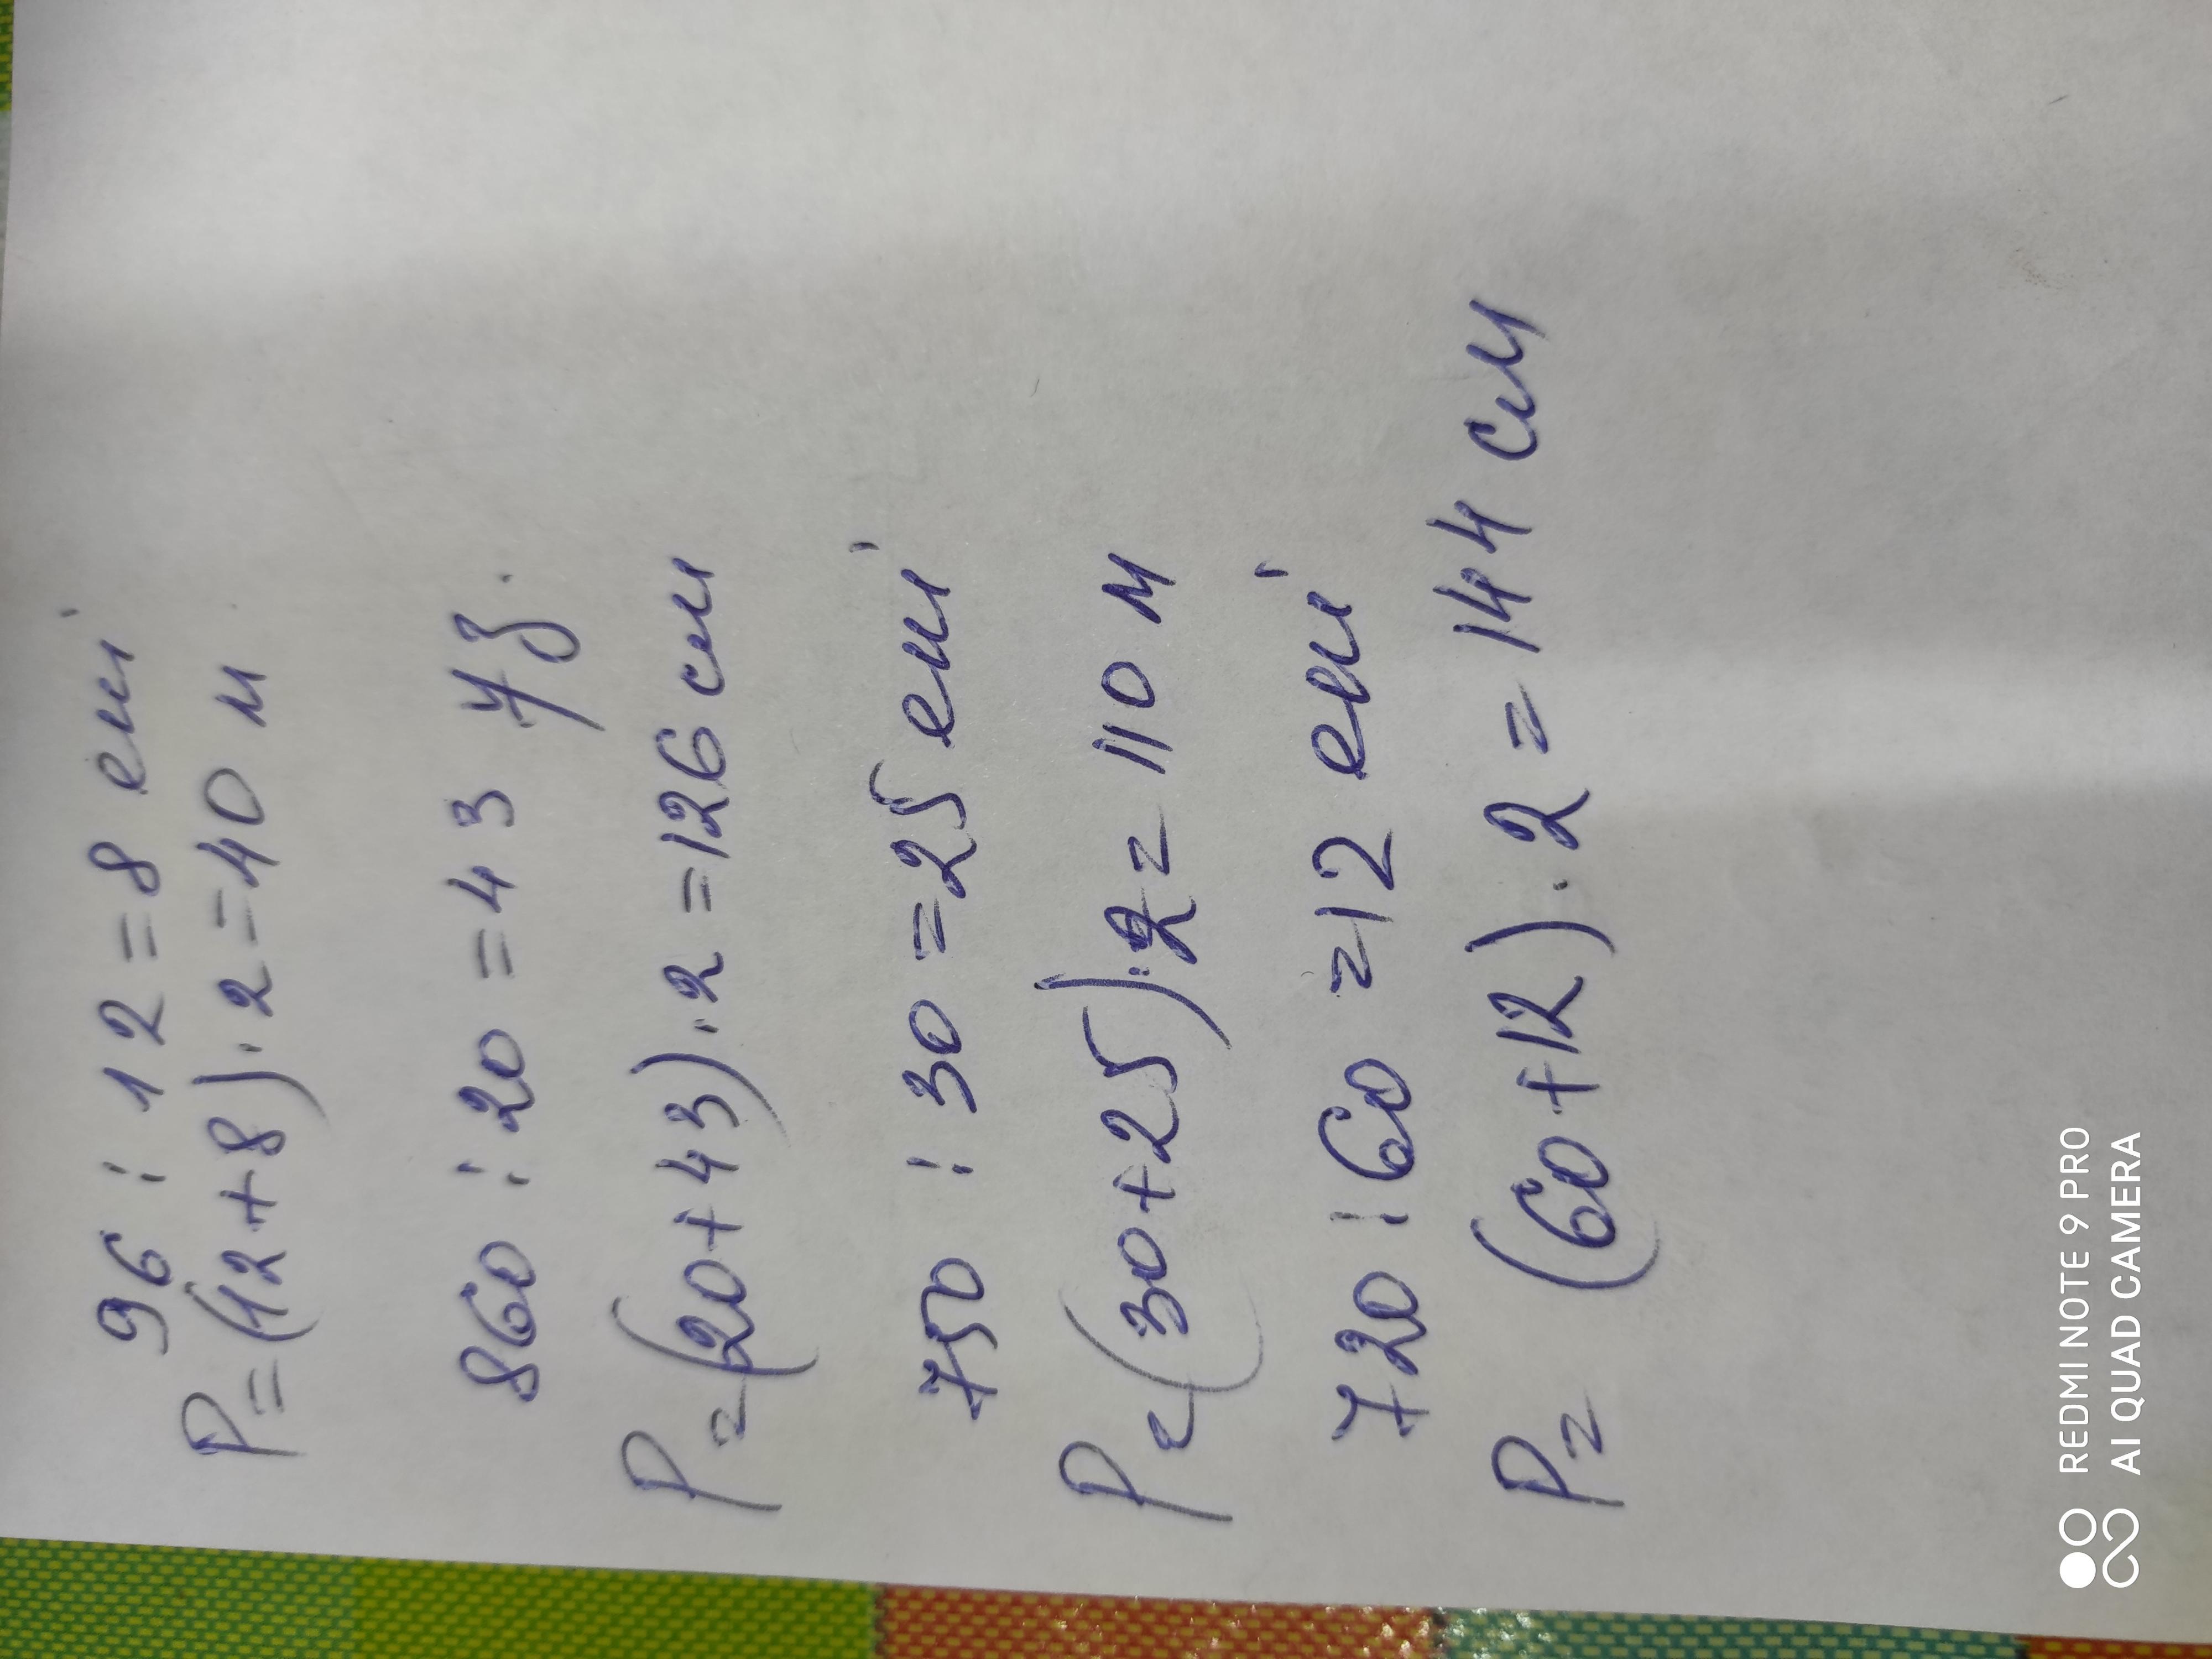 96 : 12 = 8 ені
P=(12+8).2=40 м
860 : 20 = 43 ұз.
P=(20+43).2=126 см
750 : 30 = 25 ені
P=(30+25).2=110 м
720 : 60 = 12 ені
P= (60+12).2=144 см
REDMI NOTE 9 PRO
AI QUAD CAMERA